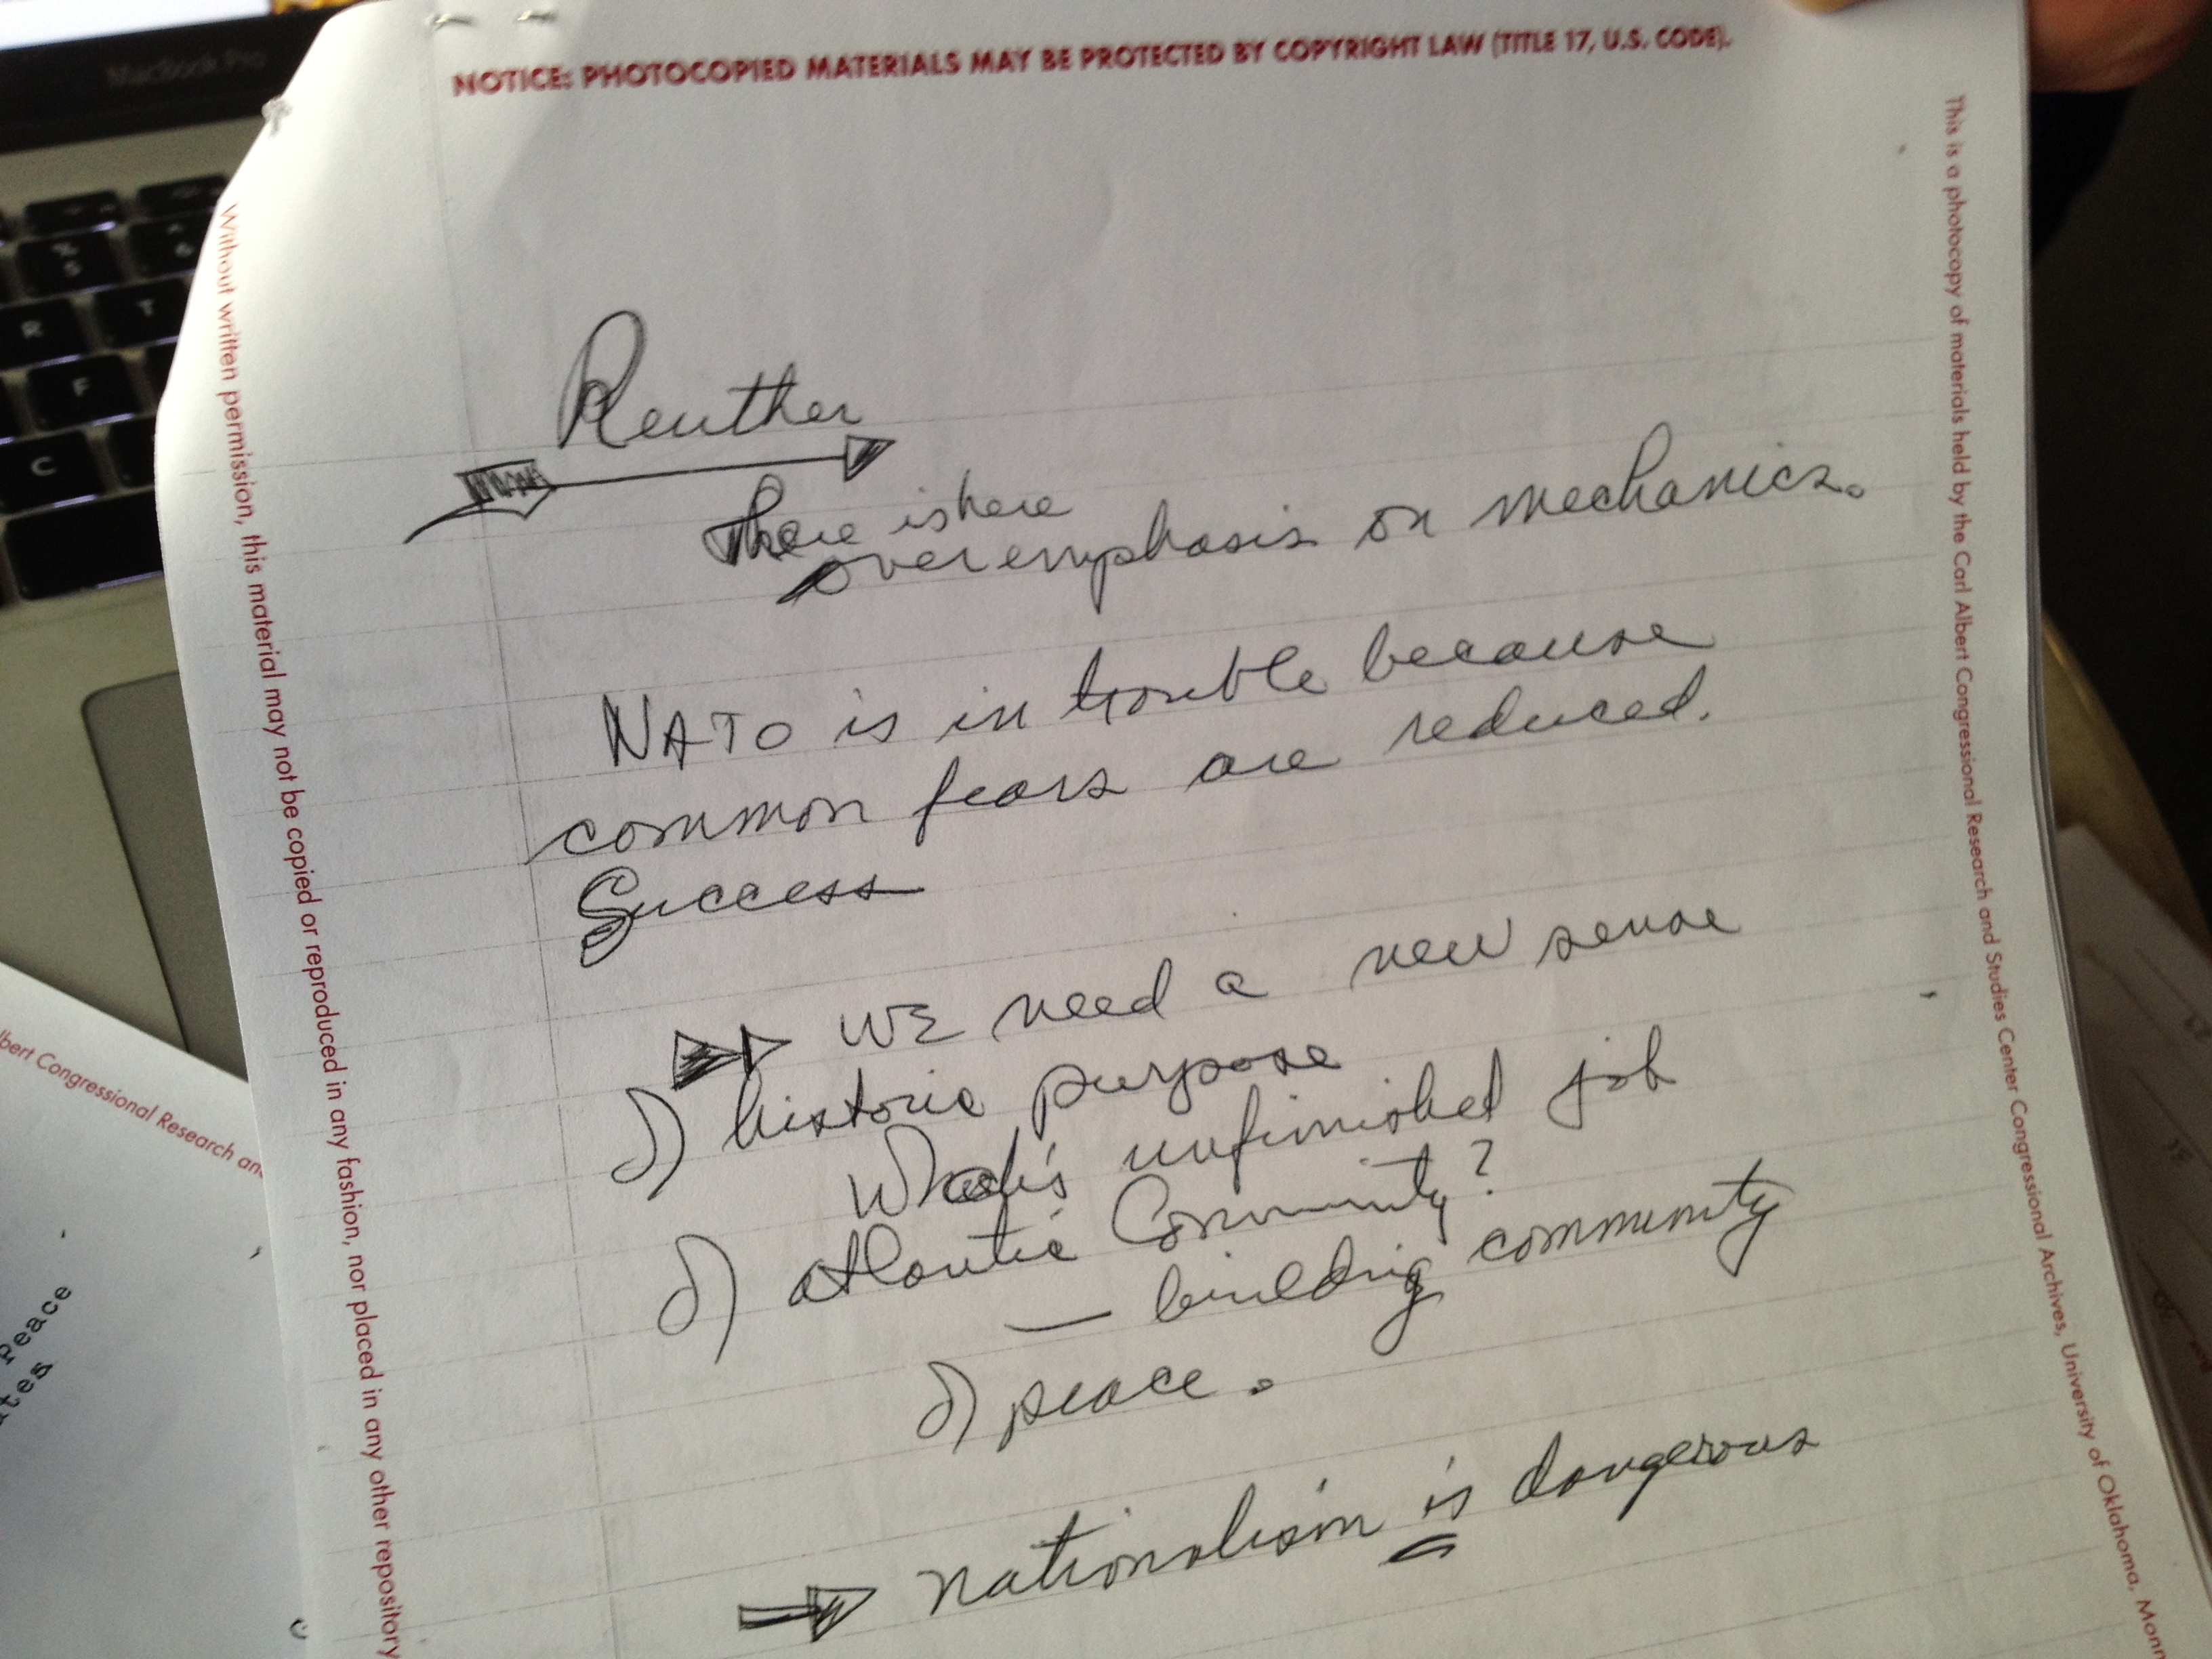 MacBook Pro
NOTICE: PHOTOCOPIED MATERIALS MAY BE PROTECTED BY COPYRIGHT LAW (TITLE 17, U.S. CODE).
This is a photocopy of materials held by the Carl Albert Congressional Research and Studies Center Congressional Archives, University of Oklahoma,
Without written permission, this material may not be copied or reproduced in any fashion, nor placed in any other repository
Reuther
There is here
overemphasis on mechanics.
NATO is in trouble because
common fears are reduced.
Success
WE need a new sense
historic purpose
What's unfinished job
atlantic Community?
— building community
peace.
nationalism is dangerous
Congressional Research
Peace
R
T
F
C